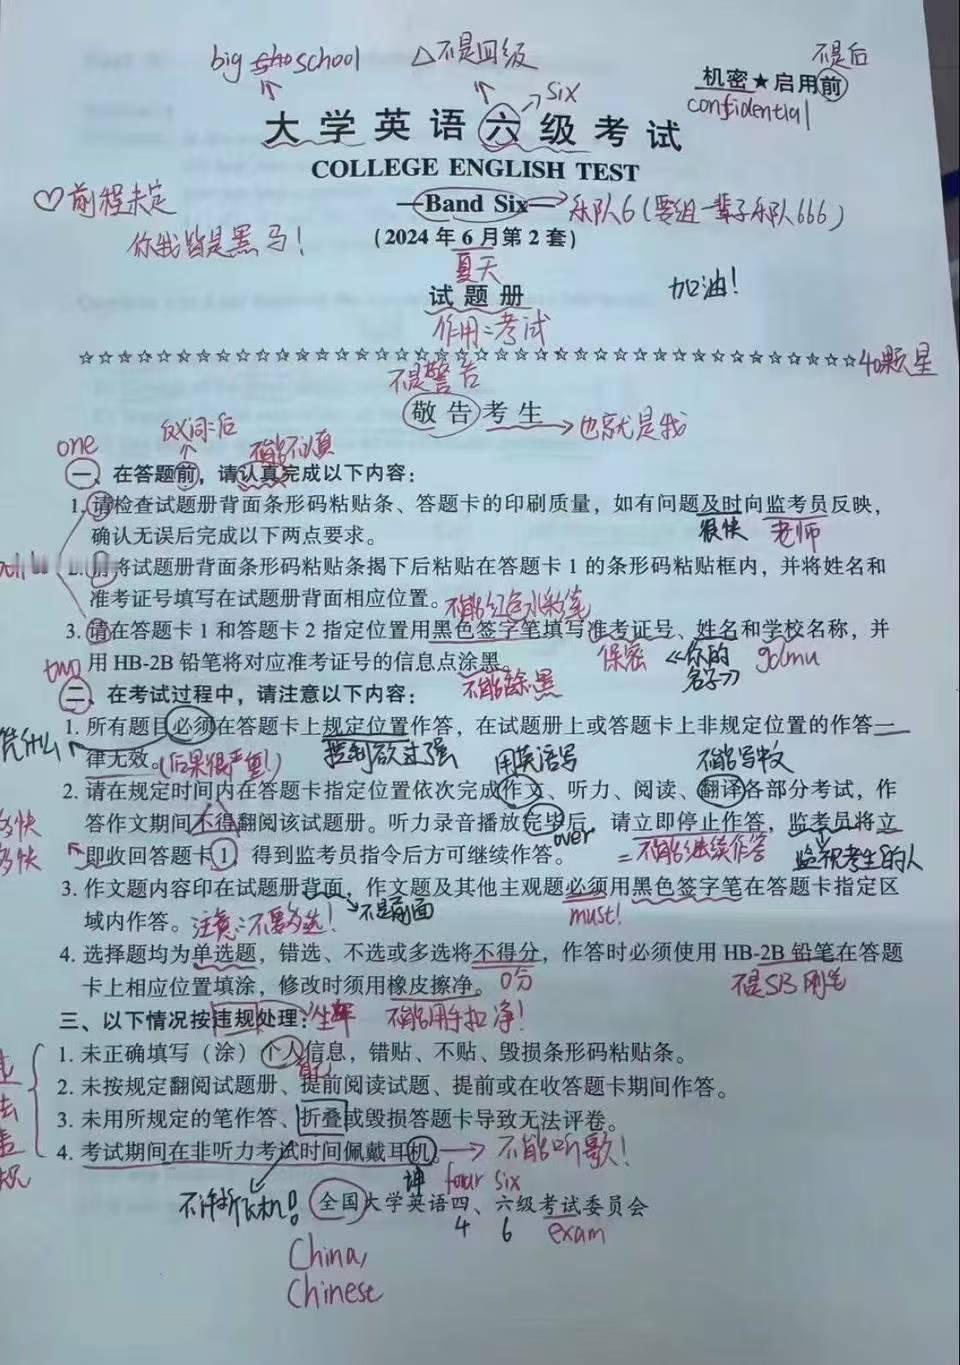 big school △不是四级
不是后
机密★启用前
confidential
six
大学英语六级考试
COLLEGE ENGLISH TEST
—Band Six—
乐队6(要组一辈子乐队666)
♡前程未定
你我皆是黑马!
(2024年6月第2套)
夏天
加油!
试题册
作用:考试
☆☆☆☆☆☆☆☆☆☆☆☆☆☆☆☆☆☆☆☆☆☆☆☆☆☆☆☆☆☆☆☆☆☆☆☆☆☆☆☆
40颗星
不是警告
敬告考生
也就是我
one
反义词:后
不能不认真
一、在答题前,请认真完成以下内容:
1. 请检查试题册背面条形码粘贴条、答题卡的印刷质量,如有问题及时向监考员反映,
很快 老师
确认无误后完成以下两点要求。
2. 请将试题册背面条形码粘贴条揭下后粘贴在答题卡1的条形码粘贴框内,并将姓名和
准考证号填写在试题册背面相应位置。
不能红色水彩笔
3. 请在答题卡1和答题卡2指定位置用黑色签字笔填写准考证号、姓名和学校名称,并
two
保密 你的名字
用HB-2B铅笔将对应准考证号的信息点涂黑。
不能除黑
二、在考试过程中,请注意以下内容:
1. 所有题目必须在答题卡上规定位置作答,在试题册上或答题卡上非规定位置的作答一
凭什么
控制欲过强 用英语写 不能写中文
律无效。
(后果很严重!)
2. 请在规定时间内在答题卡指定位置依次完成作文、听力、阅读、翻译各部分考试,作
答作文期间不得翻阅该试题册。听力录音播放完毕后,请立即停止作答,监考员将立
over
=不能继续作答 监视考生的人
即收回答题卡1,得到监考员指令后方可继续作答。
3. 作文题内容印在试题册背面,作文题及其他主观题必须用黑色签字笔在答题卡指定区
不是前面
must!
域内作答。
注意:不要多选!
4. 选择题均为单选题,错选、不选或多选将不得分,作答时必须使用HB-2B铅笔在答题
0分
不是SB钢笔
卡上相应位置填涂,修改时须用橡皮擦净。
不能用手扣净!
三、以下情况按违规处理:
1. 未正确填写(涂)个人信息,错贴、不贴、毁损条形码粘贴条。
自己
2. 未按规定翻阅试题册、提前阅读试题、提前或在收答题卡期间作答。
3. 未用所规定的笔作答、折叠或毁损答题卡导致无法评卷。
4. 考试期间在非听力考试时间佩戴耳机。
不能听歌!
坤 four six
全国大学英语四、六级考试委员会
4 6 exam
China,
Chinese